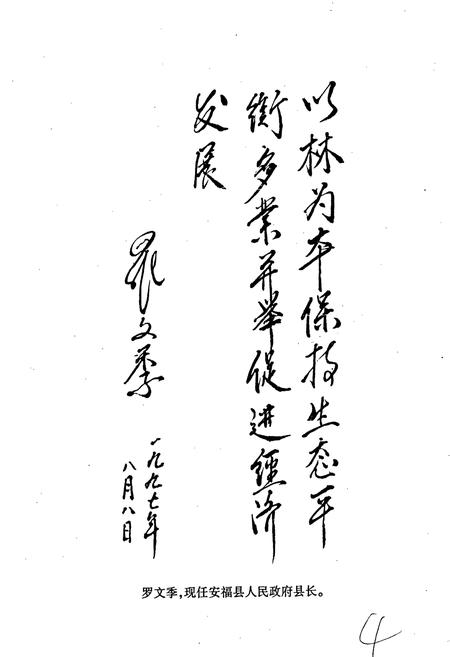 以林为本保持生态平
衡多业并举促进经济
发展
罗文季
一九九七年
八月八日
罗文季,现任安福县人民政府县长。
4